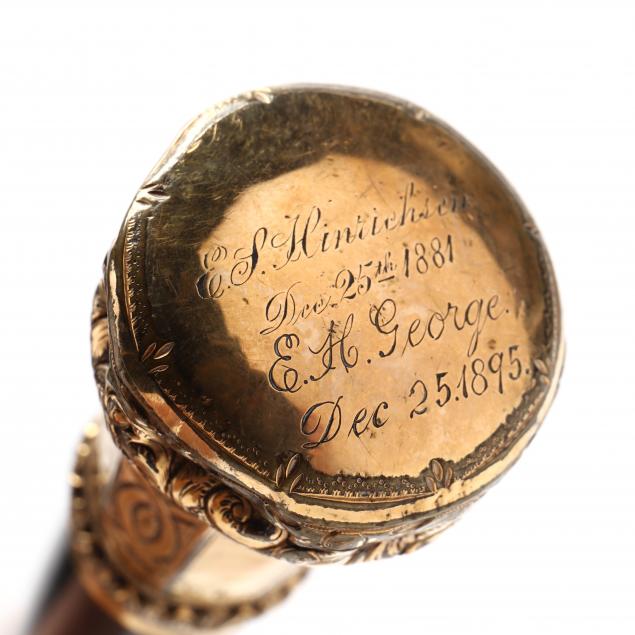 E. S. Hinrichsen
Dec. 25th 1881
E. H. George.
Dec 25. 1895.